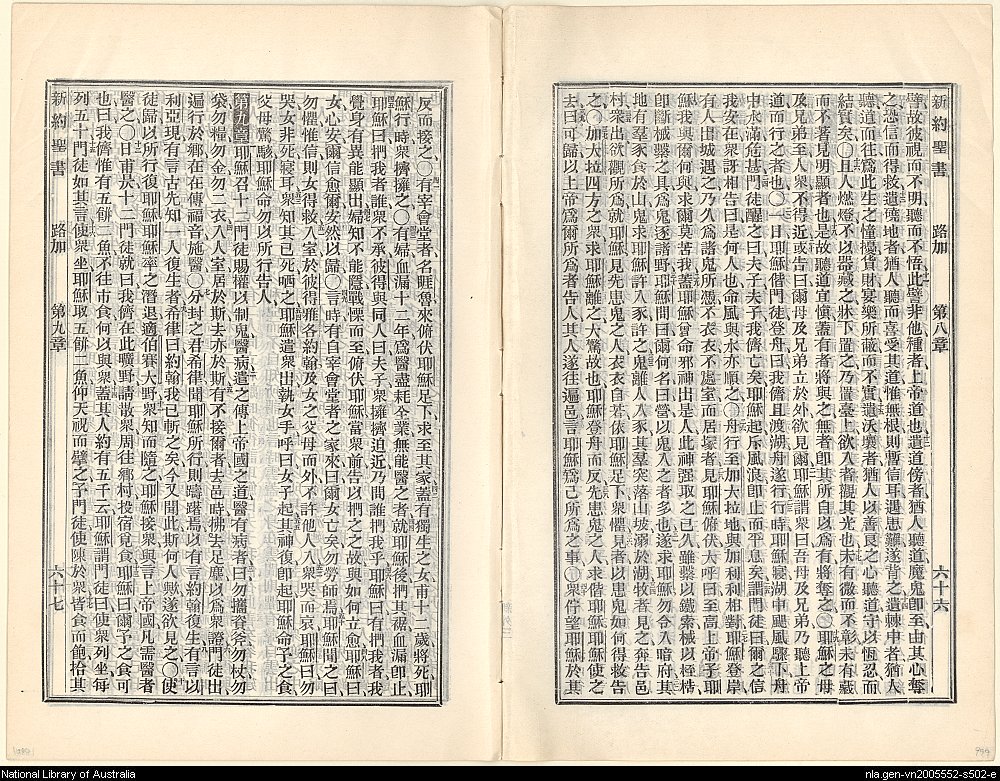 新約聖書 路加 第八章 六十六
譬故彼視而不明聽而不悟此譬非他種者上帝道也遺道傍者猶人聽道魔鬼卽至由其心奪
之恐信而得救遺磽地者猶人聽而喜受其道惟無根則暫信耳遇患難遂背之遺棘中者猶人
聽道而往爲此生之憧擾貨財宴樂所蔽而不實遺沃壤者猶人以善良之心聽道守以恆忍而
結實矣〇且人燃燈不以器藏之牀下置之乃置臺上欲入者觀其光也未有微而不彰未有藏
而不著見明顯者也是故聽道宜愼蓋有者將與之無者卽其所自以爲有將奪之〇耶穌之母
及兄弟至人衆不得近或告曰爾母及兄弟立於外欲見爾耶穌謂衆曰吾母及兄弟乃聽上帝
道而行之者也〇一日耶穌偕門徒登舟曰我儕且渡湖舟遂行行時耶穌寢湖中颶風驟下舟
中水滿危甚門徒醒之曰夫子夫子我儕亡矣耶穌起斥風浪卽止而平息矣謂門徒曰爾之信
我安在衆訝相告曰是何人也命風與水亦順之〇舟行至加大拉地與加利利相對耶穌登岸
有人出城遇之乃久爲諸鬼所憑不衣衣不處室而居塚者見耶穌俯伏大呼曰至高上帝子耶
穌我與爾何與求爾莫苦我蓋耶穌曾命邪神出是人此神强取之已久雖繫以鐵索械以桎梏
卽斷械繫之具爲鬼逐諸野耶穌問曰爾何名曰營以鬼入之者多也遂求耶穌勿令入暗府其
地有羣豕食於山鬼求耶穌許入豕許之鬼離人入豕其羣突落山坡溺於湖牧者見之奔告邑
村衆出欲觀所爲就耶穌見先患鬼之人衣衣自若依耶穌足下衆懼見者以患鬼如何得救告
之〇加大拉四方之衆求耶穌離之大驚故也耶穌登舟而反先患鬼之人求偕耶穌耶穌使之
去曰可歸以上帝爲爾所爲者告人其人遂往遍邑言耶穌爲己所爲之事〇衆佇望耶穌於其
反而接之〇有宰會堂者名睚魯來俯伏耶穌足下求至其家蓋有獨生之女甫十二歲將死耶
穌行時衆擠擁之〇有婦血漏十二年爲醫盡耗全業無能醫之者就耶穌後捫其裾血漏卽止
耶穌曰捫我者誰衆不承彼得與同人曰夫子衆擁擠迫近乃問誰捫我乎耶穌曰有捫我者我
覺身有異能顯出婦知不能隱戰慄而至俯伏耶穌當衆前告以捫之之故與如何立愈耶穌曰
女心安爾信愈爾安然以歸〇言時有自宰會堂者之家來曰爾女亡矣勿勞師焉耶穌聞之曰
勿懼惟信則女得救入室於彼得雅各約翰及女之父母而外不許他人入衆哭而哀耶穌曰勿
哭女非死寢耳衆知其已死哂之耶穌遣衆出執女手呼曰女子起其神復卽起耶穌命予之食
父母驚駭耶穌命勿以所行告人
第九章耶穌召十二門徒賜權以制鬼醫病遣之傳上帝國之道醫有病者曰勿攜眷斧勿杖勿
袋勿糧勿金勿二衣入人室居於斯去亦於斯有不接爾者去邑時拂去足塵以爲衆證門徒出
遍行於鄉在在傳福音施醫〇分封之君希律聞耶穌所行則躊躇焉以有言約翰復生有言以
利亞現有言古先知一人復生者希律曰約翰我已斬之矣今又聞此斯何人歟遂欲見之〇使
徒歸以所行復耶穌耶穌率之潛退適伯賽大野衆知而隨之耶穌接衆與言上帝國凡需醫者
醫之〇日甫昃十二門徒就曰我儕在此曠野請散衆周往鄉村投宿覓食耶穌曰爾予之食可
也曰我儕惟有五餅二魚不往市食何以與衆蓋其人約有五千云耶穌謂門徒曰使衆列坐每
列五十門徒如其言使衆坐耶穌取五餅二魚仰天視而擘之予門徒使陳於衆皆食而飽拾其
新約聖書 路加 第九章 六十七
National Library of Australia
nla.gen-vn2005552-s502-e